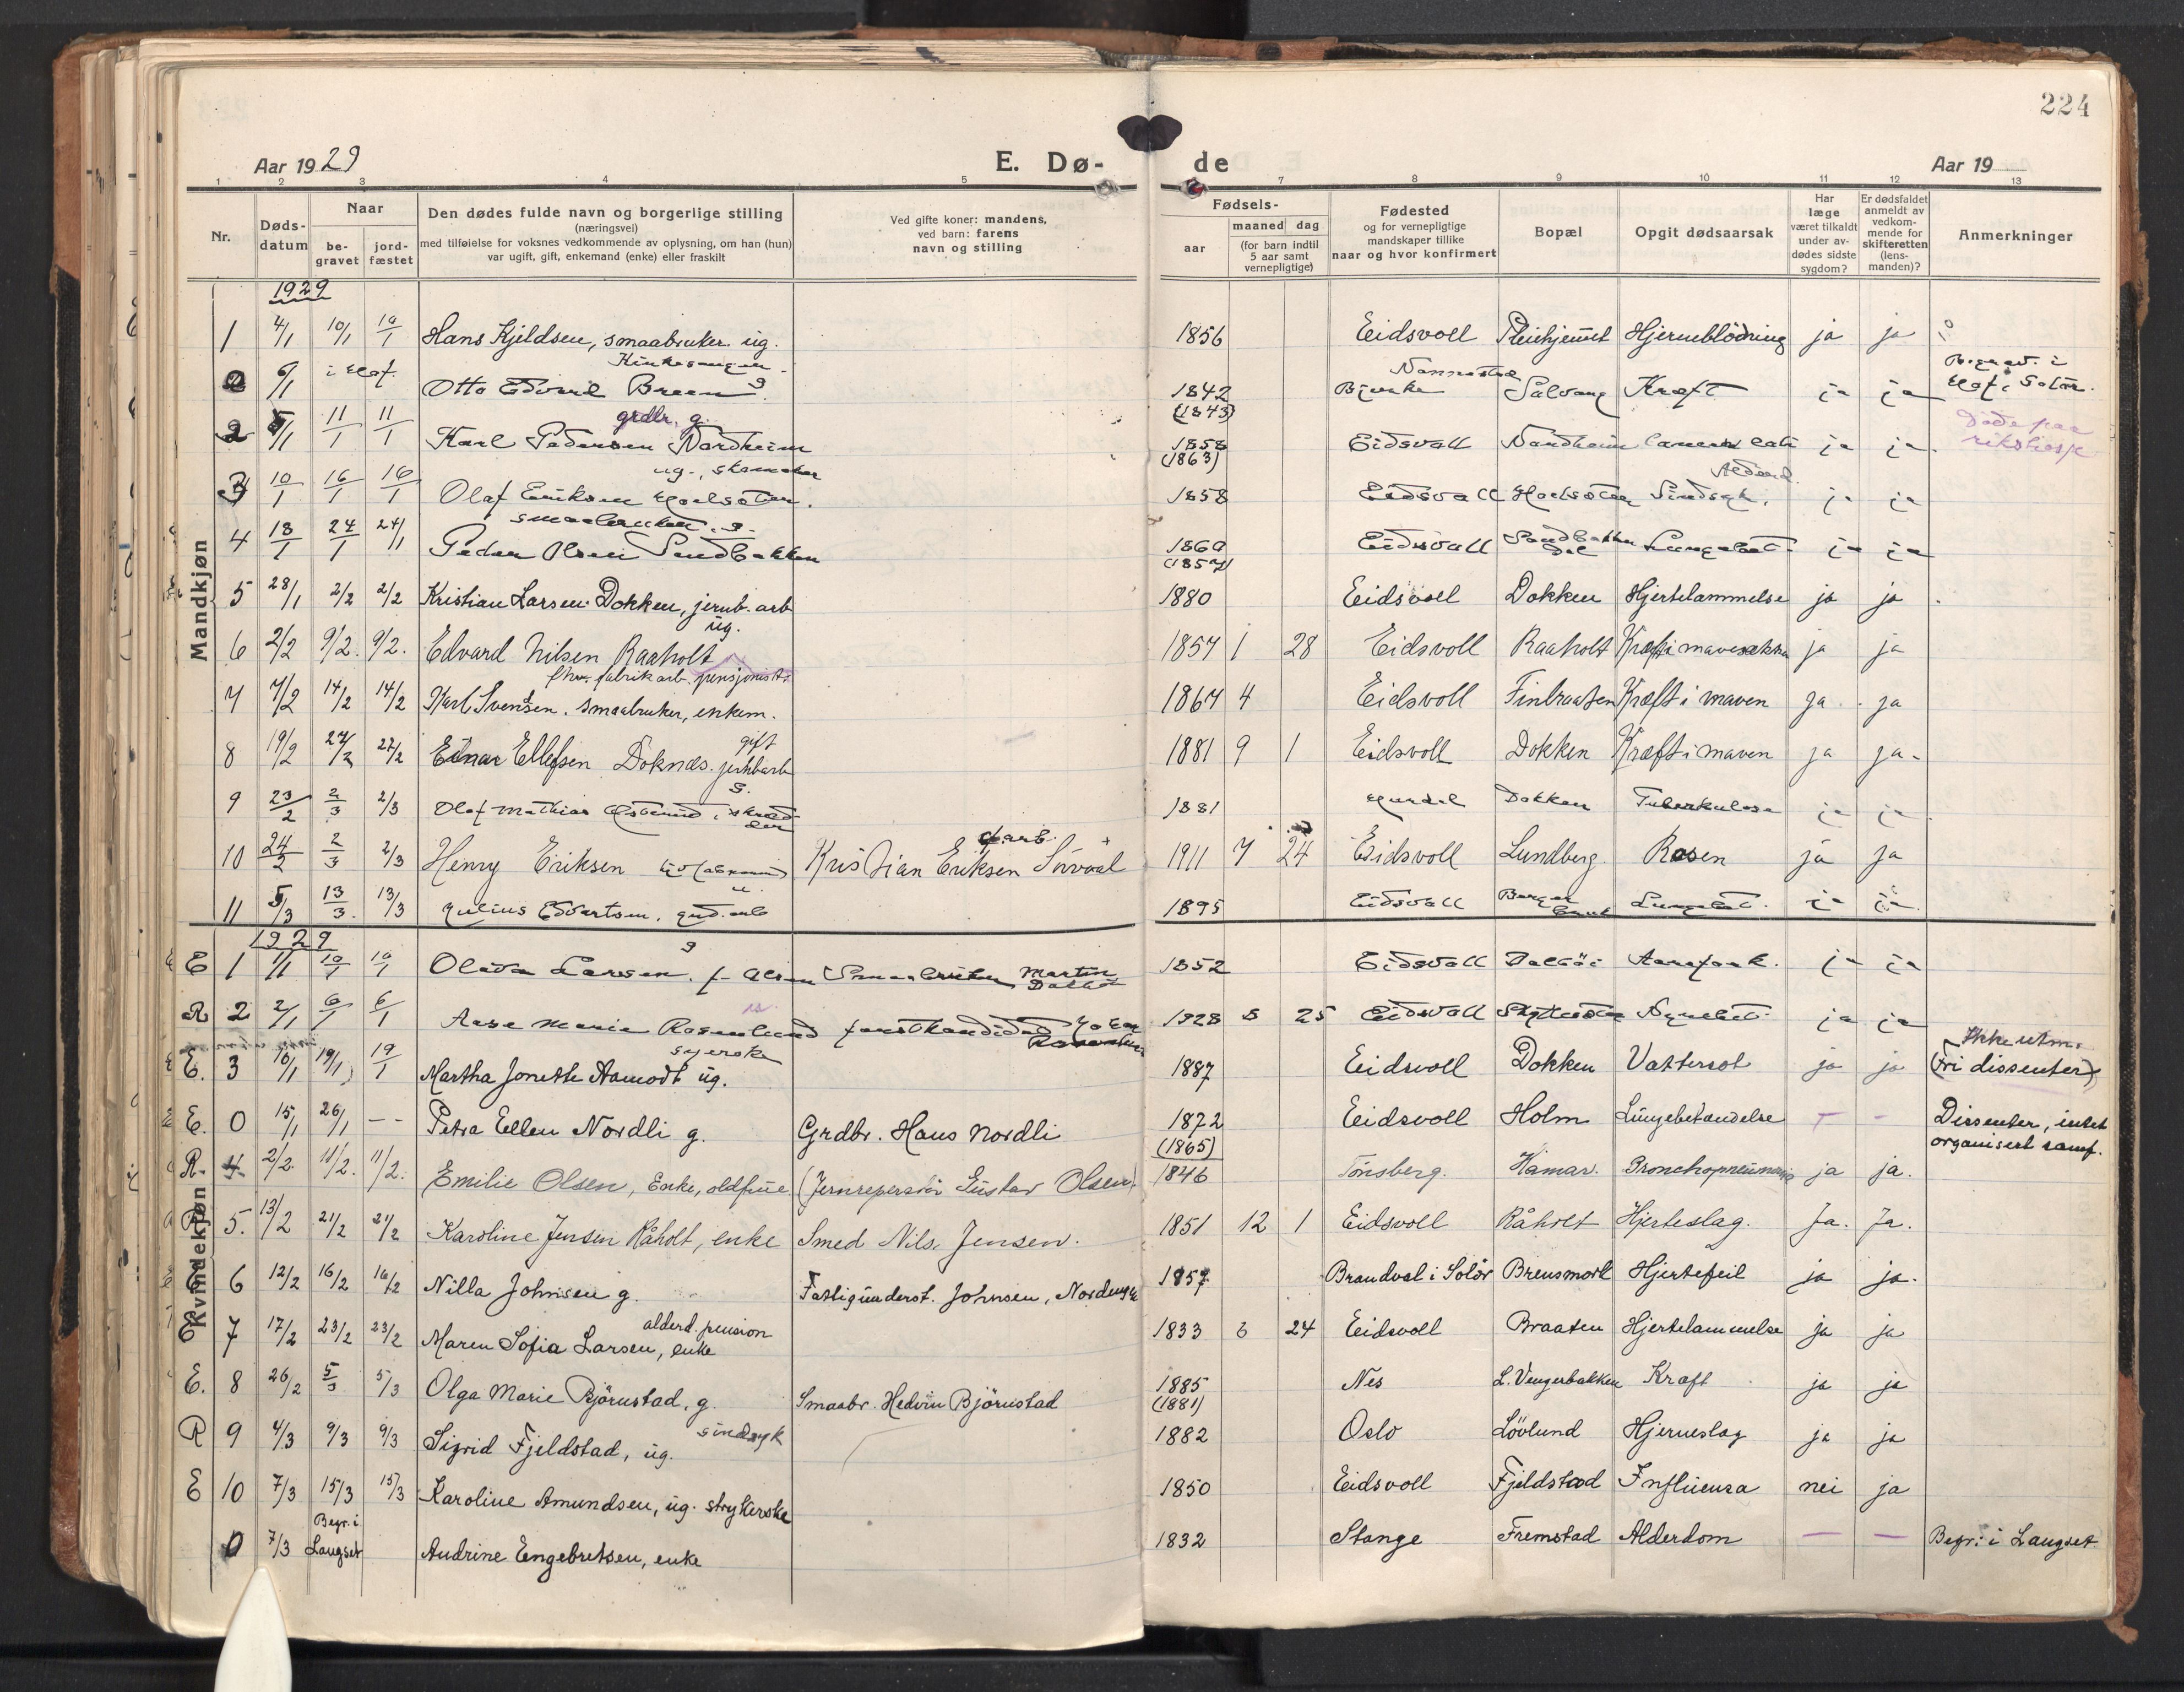 224
Aar 1929
E. Dø- de
Aar 19
1 2 3 4 5 7 8 9 10 11 12 13
Nr.
Døds-datum
Naar
be-gravet
jord-fæstet
Den dødes fulde navn og borgerlige stilling
(næringsvei)
med tilføielse for voksnes vedkommende av oplysning, om han (hun)
var ugift, gift, enkemand (enke) eller fraskilt
Ved gifte koner: mandens,
ved barn: farens
navn og stilling
Fødsels-
aar
maaned dag
(for barn indtil
5 aar samt
vernepligtige)
Fødested
og for vernepligtige
mandskaper tillike
naar og hvor konfirmert
Bopæl
Opgit dødsaarsak
Har
læge
været tilkaldt
under av-
dødes sidste
sygdom?
Er dødsfaldet
anmeldt av
vedkom-
mende for
skifteretten
(lens-
manden)?
Anmerkninger
Mandkjøn
1929
1 4/1 10/1 10/1 Hans Kjeldsen, smaabruker. ug. 1856 Eidsvoll Pleiehjemmet Hjerneblödning ja ja
6/1 i Otto Edvard 1842 (1843) Nannestad Kræft ja ja Begrav. i Solør.
2 5/1 11/1 11/1 Karl Pedersen Nordheim grdbr. g. 1858 (1863) Eidsvoll Nordheim ja ja Døde paa rikshosp.
3 10/1 16/1 16/1 Olaf Eriksen ug., skomaker 1858 Eidsvoll Sindsyk. ja ja
4 18/1 24/1 24/1 Peder Olsen Sandbakken smaabruker. g. 1860 Eidsvoll Sandbakken Dal Lungebet. ja ja
5 28/1 2/2 2/2 Kristian Larsen Dokken, jernb. arb ug. 1880 Eidsvoll Dokken Hjertelammelse ja ja
6 2/2 9/2. 9/2. Edvard Nilsen Raaholt fhv. fabrikarb. pensjonist. 1857 1 28 Eidsvoll Raaholt Kræft i mavesækken ja ja
7 7/2 14/2 14/2 Karl Svendsen. smaabruker, enkem. 1867 4 Eidsvoll Finbraaten Kræft i maven ja ja
8 19/2 27/2 27/2 Einar Ellefsen Doknæs. jernbarb gift 1881 9 1 Eidsvoll Dokken Kræft i maven ja ja
9 23/2 2/3 2/3 Olaf Mathias skrædder g. 1881 Dokken Tuberkulose ja ja
10 24/2 2/3 2/3 Henry Eriksen Kristian Eriksen 1911 7 24 Eidsvoll Lundberg Rosen ja ja
11 5/3 13/3. 13/3 Julius Edvartsen. 1895 Eidsvoll Lungebet. ja ja
Kvindekjøn
1929
E 1 1/1 10/1 10/1 Larsen. f. Olsen g Smaabruker Martin 1852 Eidsvoll ja ja
R 2 2/1 6/1 6/1 Aase Marie Rosenlund forstkandidat 1928 8 25 Eidsvoll ja ja
E. 3 16/1 19/1 19/1 Martha Jonette Aamodt ug. syerske 1887 Eidsvoll Dokken Vattersot ja ja Ikke utm. (Fri dissenter)
E. 0 15/1 26/1 -- Petra Ellen Nordli g. Grdbr. Hans Nordli 1872 (1865) Eidsvoll Holm Lungebetændelse - - Dissenter, intet organisert samf.
R. 4 2/2. 11/2. 11/2. Emilie Olsen, Enke, oldfrue (Jernreperatör Gustav Olsen) 1846 Tönsberg. Hamar. Bronchopneumonie ja ja.
5. 13/2 21/2 21/2 Karoline Jensen Råholt, enke Smed Nils Jensen. 1851 12 1 Eidsvoll Råholt Hjerteslag. Ja. Ja.
E 6 12/2 16/2 16/2 Nilla Johnsen g. Fattigunderst. Johnsen, 1857 Brandval i Solör Brensmork Hjertefeil ja ja.
E 7 17/2 23/2 23/2 Maren Sofia Larsen, enke alderd. pension 1833 6 24 Eidsvoll Braaten Hjertelammelse ja ja
E. 8 26/2 5/3 5/3 Olga Marie Björnstad, g. Smaabr. Hedvin Björnstad 1885 (1881) Nes L. Vengerbakken Kræft ja ja
R 9 4/3 9/3 9/3 Sigrid Fjeldstad, ug. sindsyk 1882 Oslo Lövlund Hjerneslag ja ja
E 10 7/3 15/3 15/3 Karoline Amundsen, ug. strykerske 1850 Eidsvoll Fjeldstad Influensa nei ja
0 7/3 Begr. i Langset Andrine Engebretsen, enke 1832 Stange Fremstad Alderdom — — Begr. i Langset